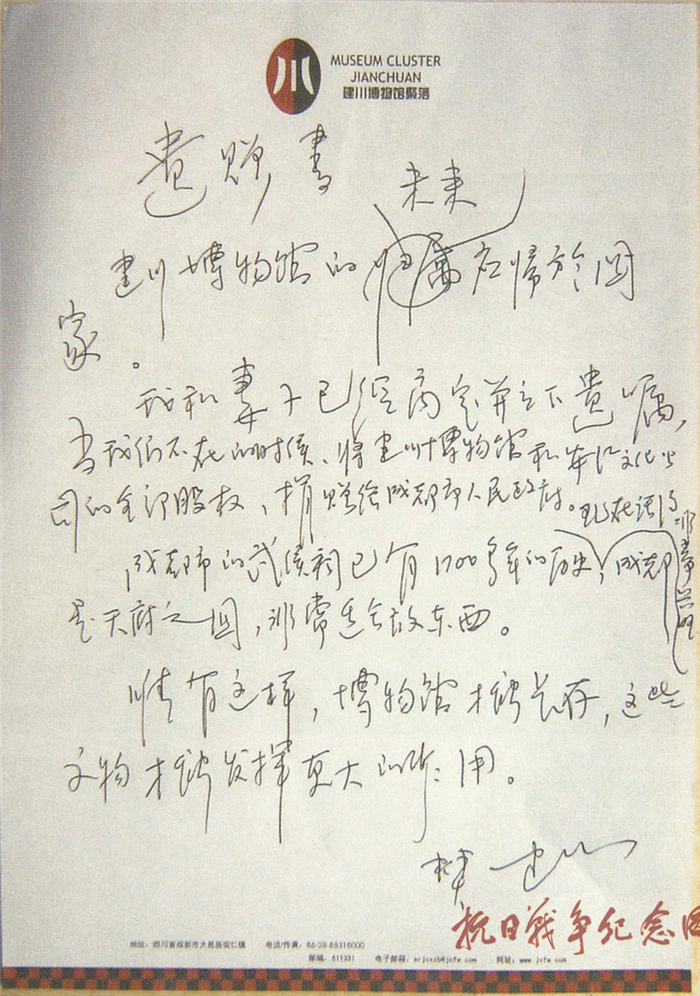 川
MUSEUM CLUSTER
JIANCHUAN
建川博物馆聚落
遗赠书
未来
建川博物馆的归属应归於国
家。
我和妻子已经商定并立下遗嘱,
当我们不在的时候、将建川博物馆和安仁文化公
司的全部股权,捐赠给成都市人民政府。现在证明
成都市的武侯祠已有1700多年的历史,成都
非常兴旺
是天府之国,非常适合放东西。
惟有这样,博物馆才能长存,这些
文物才能发挥更大的作用。
樊建川
抗日战争纪念网
地址:四川省成都市大邑县安仁镇 电话/传真:86-28-88318000
邮编:611331 电子邮箱:arjcxzb@jcfw.com 网址:www.jcfw.com